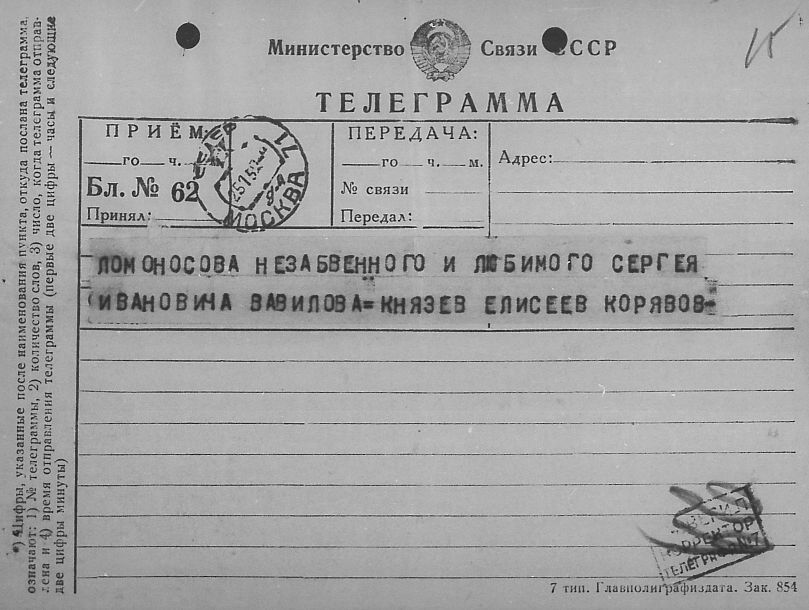 15
Министерство Связи СССР
ТЕЛЕГРАММА
ПРИЁМ:
го ч.
Бл. № 62
Принял:
МОСКВА
ПЕРЕДАЧА:
го ч. м.
№ связи
Передал:
Адрес:
ЛОМОНОСОВА НЕЗАБВЕННОГО И ЛЮБИМОГО СЕРГЕЯ
ИВАНОВИЧА ВАВИЛОВА=КНЯЗЕВ ЕЛИСЕЕВ КОРЯВОВ-
КОРРЕКТОР
7 тип. Главполиграфиздата. Зак. 854
*) Цифры, указанные после наименования пункта, откуда послана телеграмма,
означают: 1) № телеграммы, 2) количество слов, 3) число, когда телеграмма отправ-
лена и 4) время отправления телеграммы (первые две цифры — часы и следующие
две цифры минуты)